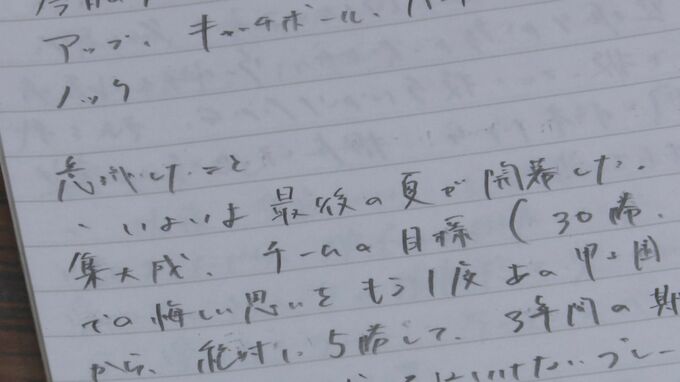 アップ、キャッチボール、
ノック
意識したこと
・いよいよ最後の夏が開幕した。
集大成、チームの目標(30勝、
での悔しい思いをもう1度あの甲子園
から、絶対に5勝して、3年間の